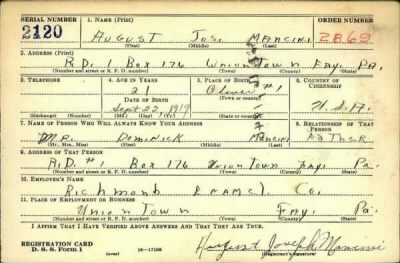 SERIAL NUMBER 1. NAME (Print) ORDER NUMBER
2120 AUGUST JOS. MANCINI 2862
(First) (Middle) (Last)
2. ADDRESS (Print)
R.D. 1 Box 176 UNIONTOWN FAY. PA.
(Number and street or R. F. D. number) (Town) (County) (State)
3. TELEPHONE 4. AGE IN YEARS 5. PLACE OF BIRTH 6. COUNTRY OF CITIZENSHIP
21
DATE OF BIRTH (Town or county)
Sept 22 1919 U.S.A.
(Exchange) (Number) (Mo.) (Day) (Yr.) (State or country)
7. NAME OF PERSON WHO WILL ALWAYS KNOW YOUR ADDRESS 8. RELATIONSHIP OF THAT PERSON
MR. DOMINICK MANCINI FATHER
(Mr., Mrs., Miss) (First) (Middle) (Last)
9. ADDRESS OF THAT PERSON
R.D. #1 Box 176 UNIONTOWN FAY. Pa.
(Number and street or R. F. D. number) (Town) (County) (State)
10. EMPLOYER'S NAME
Richmond ENAMEL Co.
11. PLACE OF EMPLOYMENT OR BUSINESS
UNIONTOWN FAY. Pa.
(Number and street or R. F. D. number) (Town) (County) (State)
I AFFIRM THAT I HAVE VERIFIED ABOVE ANSWERS AND THAT THEY ARE TRUE.
REGISTRATION CARD
D. S. S. Form 1 (over) August Joseph Mancini
(Registrant's signature)